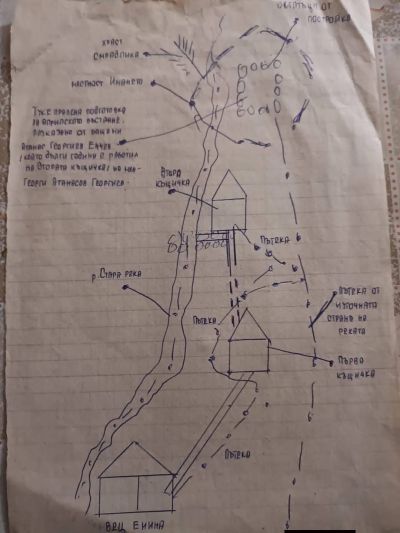 ОБКРЪЖИ ОТ
ПОСТРОЙКА
ХРАСТ
СМРАДЛИКА
МЕСТНОСТ ИМАНЕТО
ТУК Е ПРАВЕНА ПОДГОТОВКА
ЗА АПРИЛСКОТО ВЪСТАНИЕ,
ПОКАЗАНО ОТ
АТАНАС ГЕОРГИЕВ ЕНЧЕВ
КОЙТО ДЪЛГИ ГОДИНИ Е РАБОТИЛ
НА ВТОРАТА КЪЩИЧКА,
ГЕОРГИ АТАНАСОВ ГЕОРГИЕВ.
ВТОРА
КЪЩИЧКА
ПЪТЕКА
р. СТАРА РЕКА
ПЪТЕКА ОТ
ИЗТОЧНАТА
СТРАНА НА
РЕКАТА
ПЪТЕКА
ПЪРВА
КЪЩИЧКА
ПЪТЕКА
ВЕЦ ЕНИНА